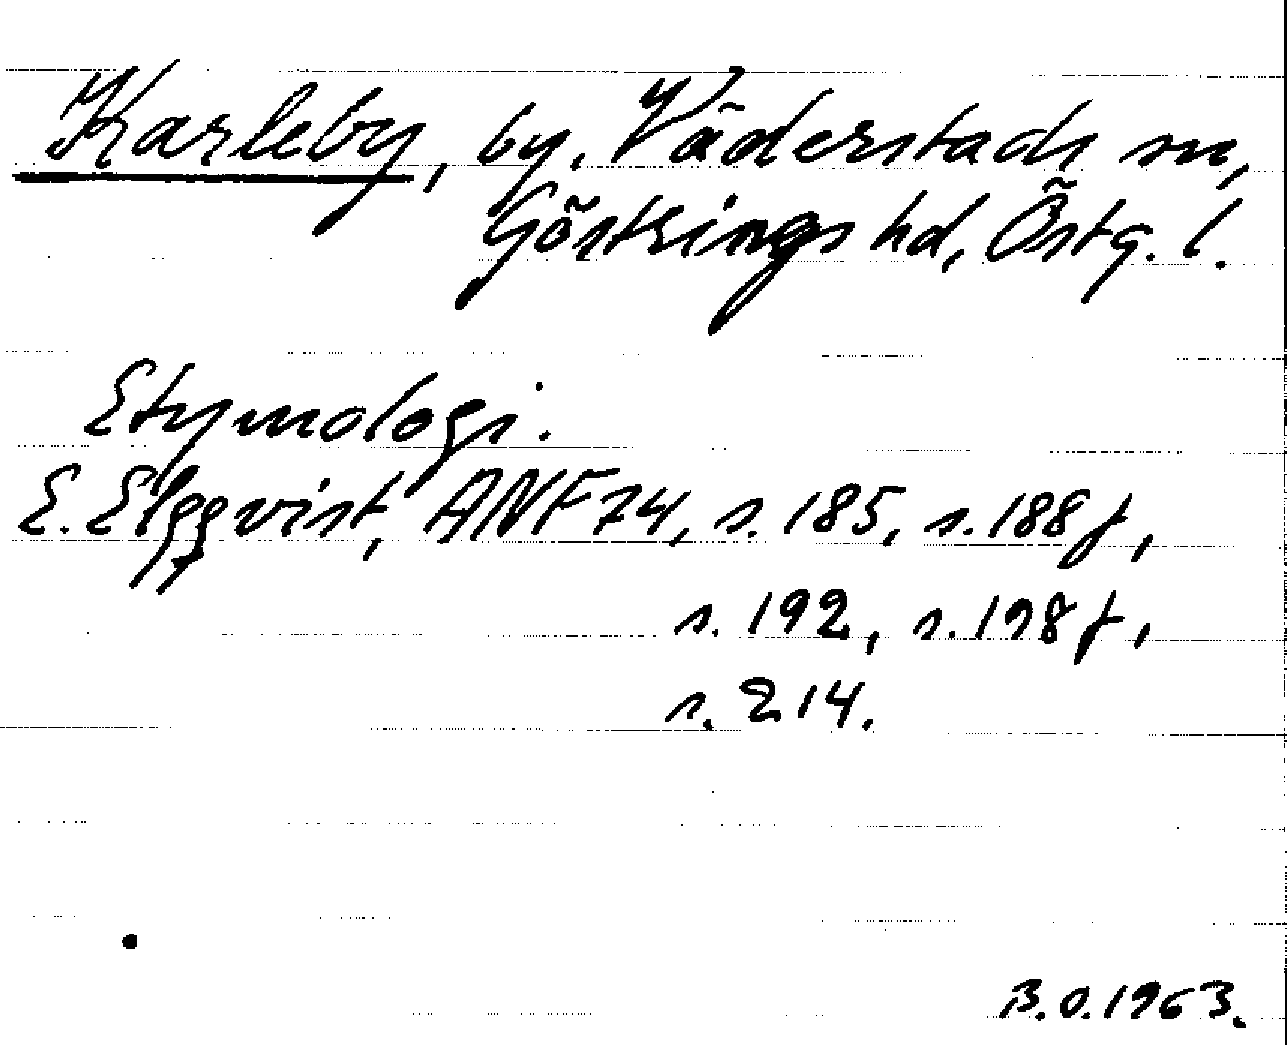 Karleby, by, Väderstads sn,
Göstrings hd, Östg. l.
Etymologi.
E. Elgqvist, ANF 74, s. 185, s. 188 f,
s. 192, s. 198 f,
s. 214.
B.O. 1963.